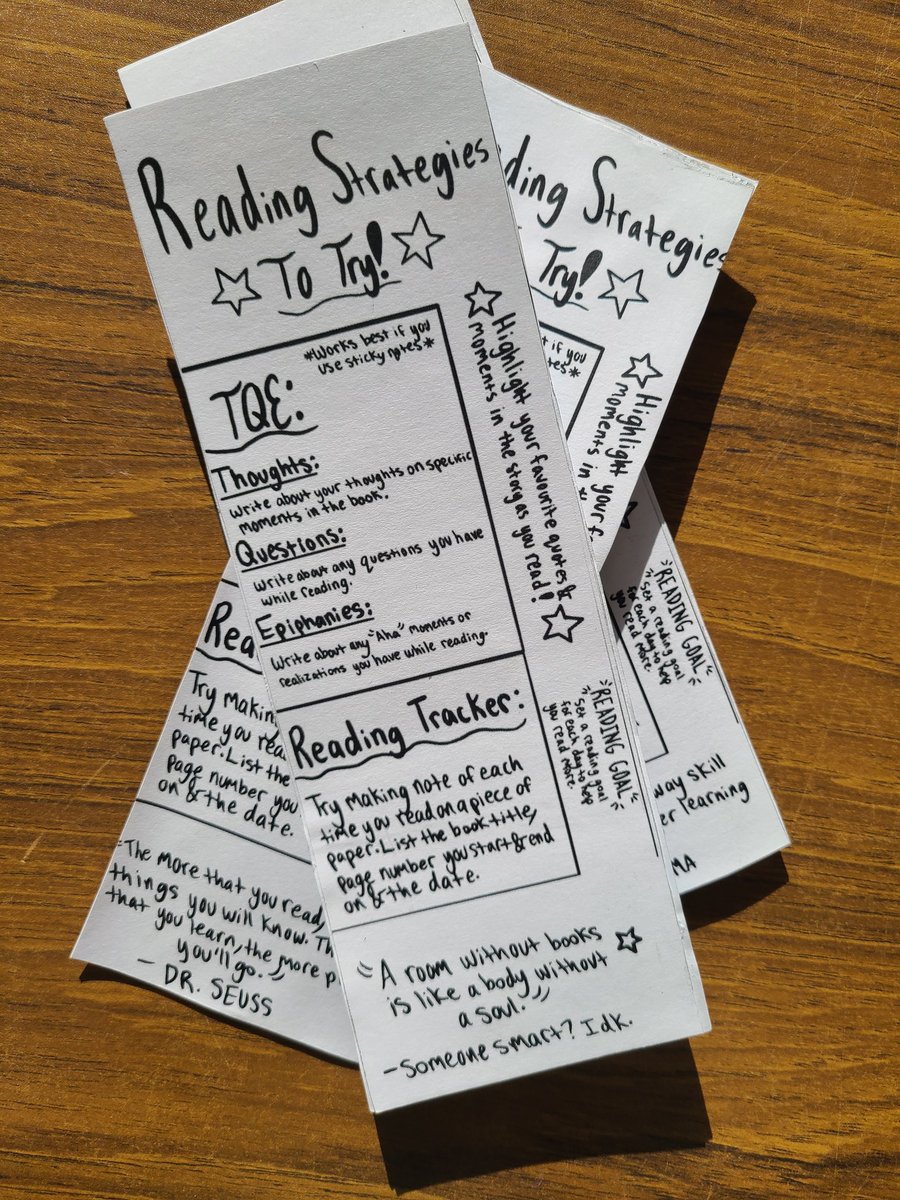 Reading Strategies
To Try!
*Works best if you
use sticky notes*
TQE:
Thoughts:
Write about your thoughts on specific
moments in the book.
Questions:
Write about any questions you have
while reading.
Epiphanies:
Write about any "Aha" moments or
realizations you have while reading.
Highlight your favourite quotes &
moments in the story as you read!
Reading Tracker:
Try making note of each
time you read on a piece of
paper. List the book title,
page number you start & end
on & the date.
"READING GOAL"
"Set a reading goal
for each day to help
you read more.
"A room without books
is like a body without
a soul."
-Someone smart? Idk.
ding Strategies
Try!
if you
tes*
Highlight your f
moments in
READING GOAL"
"Set a reading goal
for each day to help
you read more.
way skill
er learning
MA
Rea
Try making
time you rea
paper. List the
page number you
on & the date.
"The more that you read,
things you will know. Th
that you learn, the more p
you'll go."
- DR. SEUSS